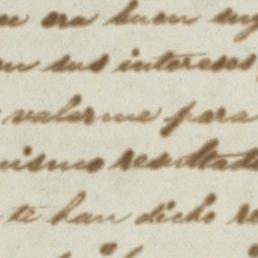 era buen
sus intereses
valerme para
mismo resultado
te han dicho re